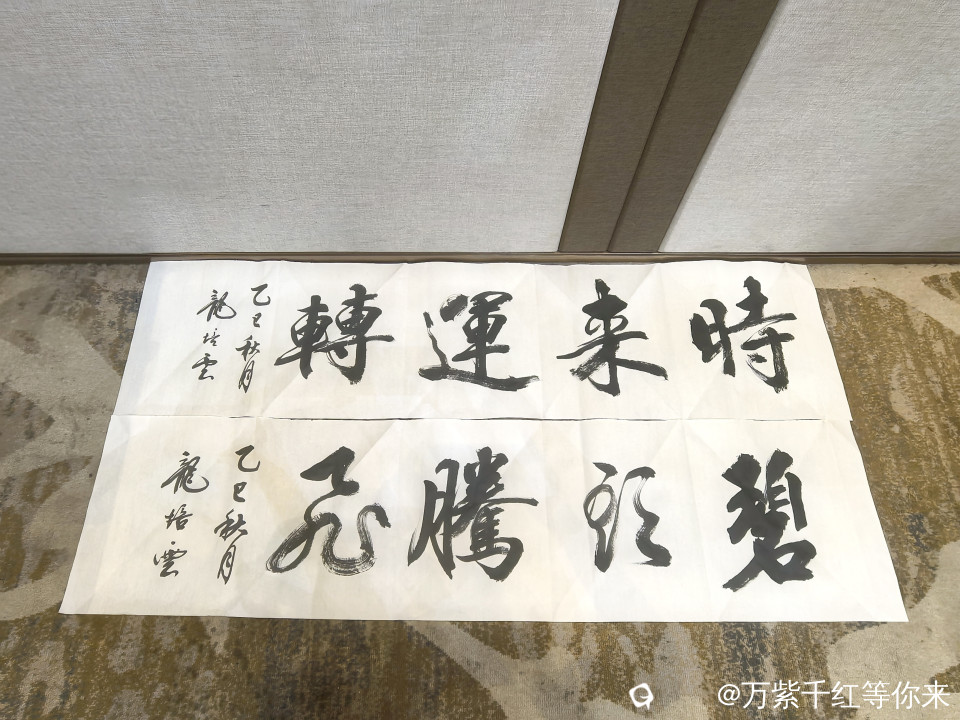 時来運轉
乙巳秋月
龍培雲
碧騰飛
乙巳秋月
龍培雲
@万紫千红等你来